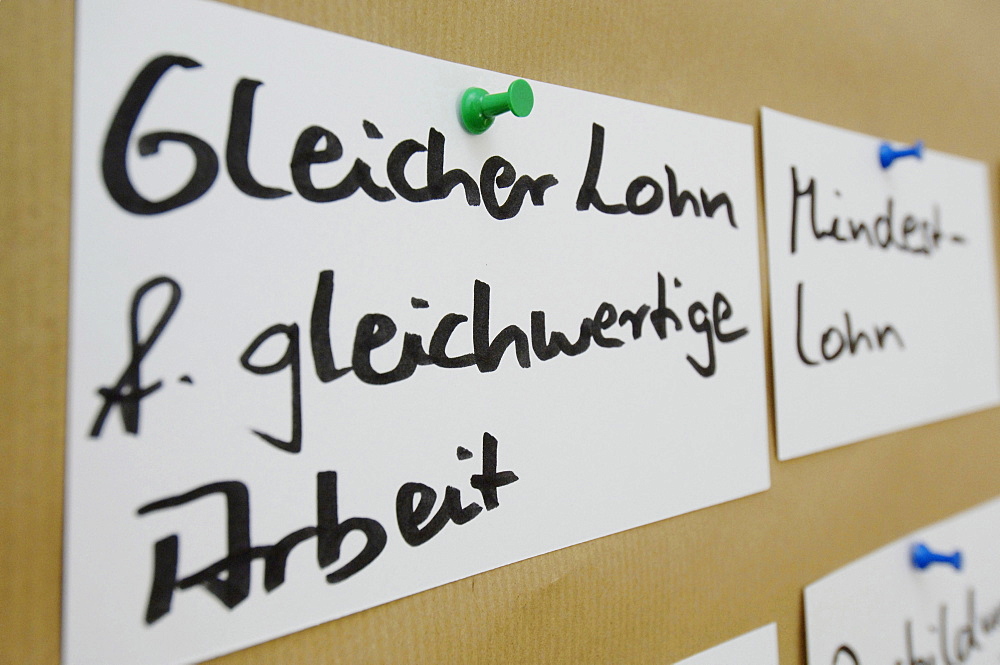 Gleicher Lohn
f. gleichwertige
Arbeit
Mindest-
lohn